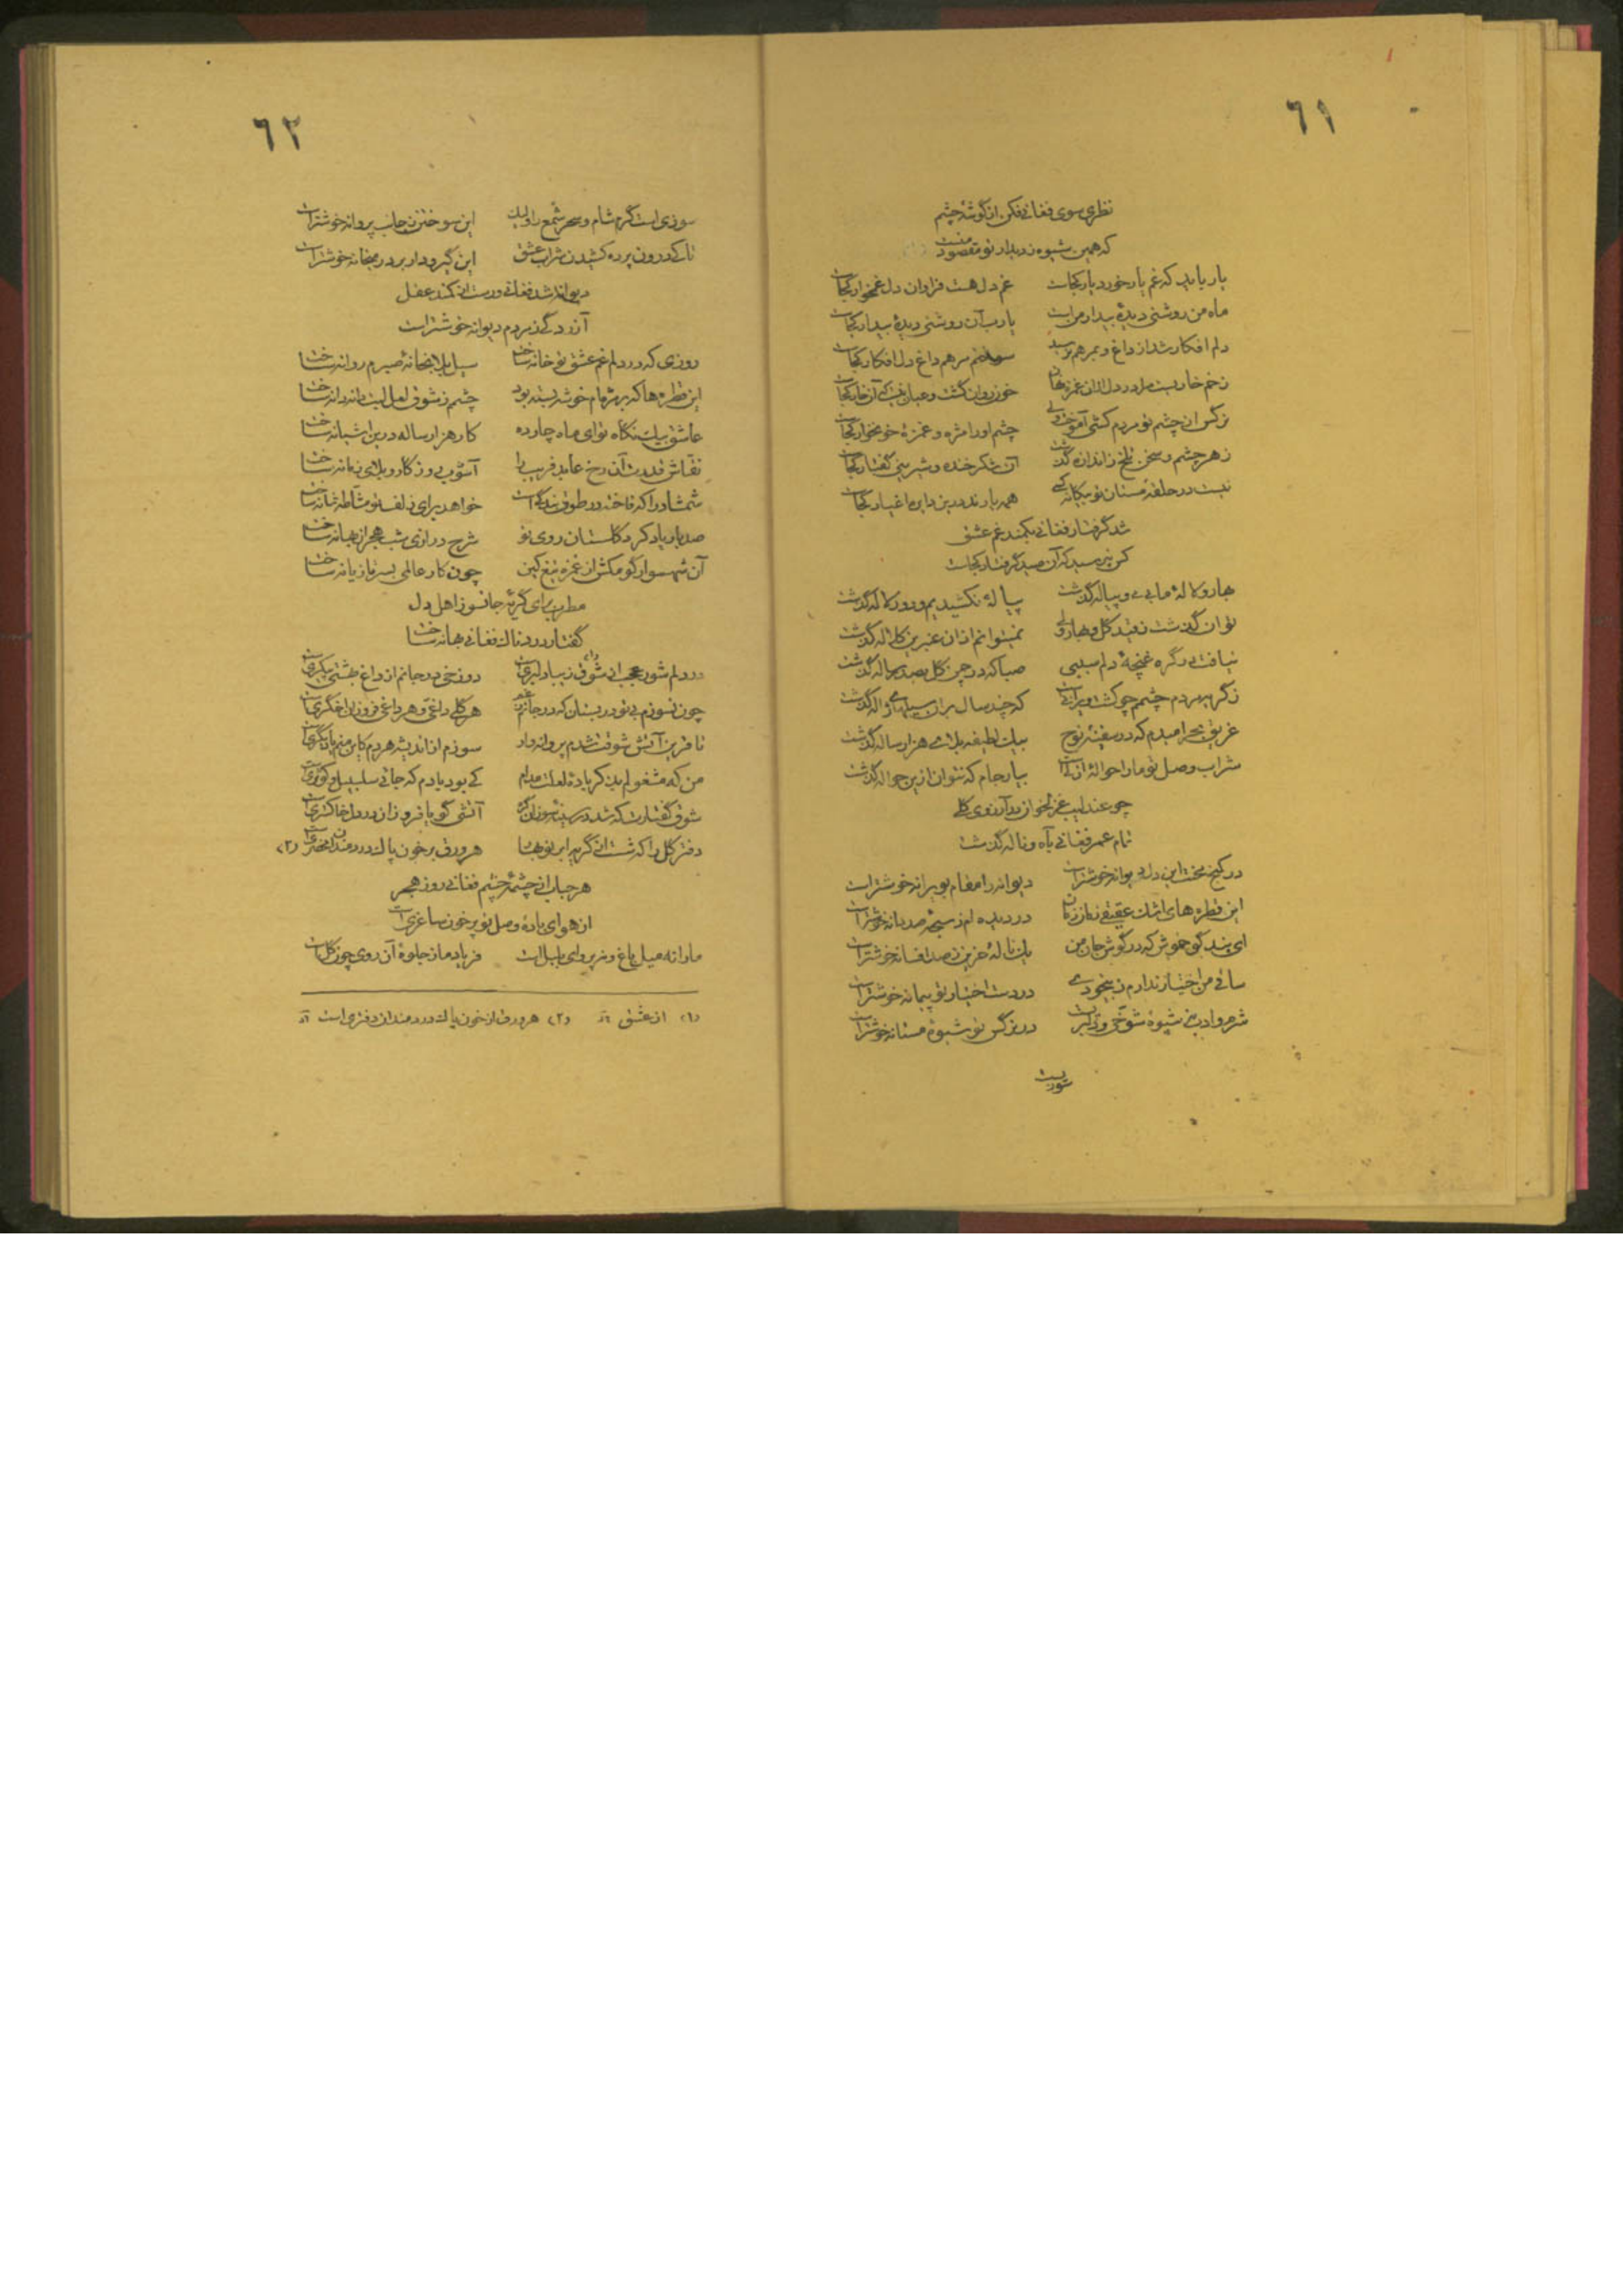 ٦١
نظری سوی فغانی فکن از گوشهٔ چشم
که همین شیوه ز دیدار تو مقصود منست
یار باید که غم یار خورد یار کجاست غم دل هست فراوان دل غمخوار کجاست
ماه من روشنی دیدهٔ بیدار من است یارب آن روشنی دیدهٔ بیدار کجاست
دلم افکار شد از داغ و بمرهم نرسید مرهم داغ دل افکار کجاست
زخم خاریست مرا در دل ازان غمزه نهان خون روان گشت و عیان نیست که آن خار کجاست
نرگس از چشم تو مردم کشی آموخت ولی چشم او را مژه و غمزهٔ خونخوار کجاست
زهر چشم و سخن تلخ ز اندازه گذشت آن شکر خنده و شیرینی گفتار کجاست
نیست در حلقهٔ مستان تو بیگانه کسی همه یارند درین دایره اغیار کجاست
شد گرفتار فغانی بکمند غم عشق
کس نپرسید که آن صید گرفتار کجاست
بهار و لالهٔ ما بی می و پیاله گذشت پیالهٔ نکشیدیم و دور لاله گذشت
توان گذشت ز قید گل و بهار ولی نمیتوانم ازان عنبرین کلاله گذشت
نیافت رگ گره غنچهٔ دلم سببی صبا که در چمن گل بصد رساله گذشت
ز گریه مردم چشمم چو کشت ویرانیست که چند سال بران سیلهای ژاله گذشت
غریق بحر امیدم که در سفینهٔ نوح بیک لطیفه بلای هزار ساله گذشت
شراب وصل تو ما را حوالهٔ ازلیست بیار جام که نتوان ازین حواله گذشت
چو عندلیب غزلخوان در آرزوی گلی
تمام عمر فغانی بآه و ناله گذشت
در کنج محنت این دل دیوانه خوشتر است دیوانه را مقام بویرانه خوشتر است
این قطره های اشک عقیقی زمان زمان در دیده ام ز سبحهٔ صد دانه خوشتر است
ای پند گو خموش که در گوش جان من یک نالهٔ حزین ز صد افسانه خوشتر است
ساقی من اختیار ندارم ز بیخودی در دست اختیار تو پیمانه خوشتر است
شرم و ادب نه شیوهٔ شوخی و دلبریست در نرگس تو شیوهٔ مستانه خوشتر است
سوزیست
٦٢
سوزی است گرم شام و سحر شمع را ولیک این سوختن ز جانب پروانه خوشتر است
تا کی درون پرده کشیدن شراب عشق این گیرودار بر در میخانه خوشتر است
دیوانه شد فغانی و رست از کمند عقل
آزردگی ز مردم دیوانه خوشتر است
روزی که در دلم غم عشق تو خانه ساخت سیل بلا بخانهٔ صبرم روانه ساخت
این قطره ها که بر مژه ام خوشه بسته بود چشمم ز شوق لعل لبت دانه دانه ساخت
عاشق بیک نگاه تو ای ماه چارده کار هزار ساله درین یک شبانه ساخت
نقاش قدرت آن رخ عابد فریب را آشوب روزگار و بلای زمانه ساخت
شمشاد را که فاخته در طوق بندگیست خواهد برای زلف تو مشاطه شانه ساخت
صد بار یاد کرد گلستان روی تو شرح درازی شب هجران بهانه ساخت
آن شهسوار گو مکش از غمزه تیغ کین چون کار عالمی بسر تازیانه ساخت
مطرب برای گریهٔ جانسوز اهل دل
گفتار دردناک فغانی بهانه ساخت
در دلم شور عجب از شوق (۱) زیبا دلبریست دوزخی در جانم از داغ بهشتی پیکریست
چون نسوزم بی تو در بستان که در جانم هر گلی داغی و هر داغی فروزان اخگریست
تا قرین آتش شوقت شدم پروانه وار سوزم از اندیشه هر دم کاین منم یا دیگریست
من که مشغولم بذکر بادهٔ لعلت مدام کی بود یادم که جائی سلسبیل و کوثریست
شوق گفتارت که شد در سینهٔ سوزان گره آتشی گویا فروزان در دل خاکستریست
دفتر گل را که شست از گریه ابر نوبهار هر ورق پر خون پاک دردمندان محضریست (۲)
هر حباب از چشمهٔ چشم فغانی روز هجر
از هوای بادهٔ وصل تو پر خون ساغریست
ما را نه میل باغ و نه پروای بلبل است فریاد ما ز جلوهٔ آن روی چون گل است
(۱) از عشق (۲) هر ورق از خون پاک دردمندان دفتری است